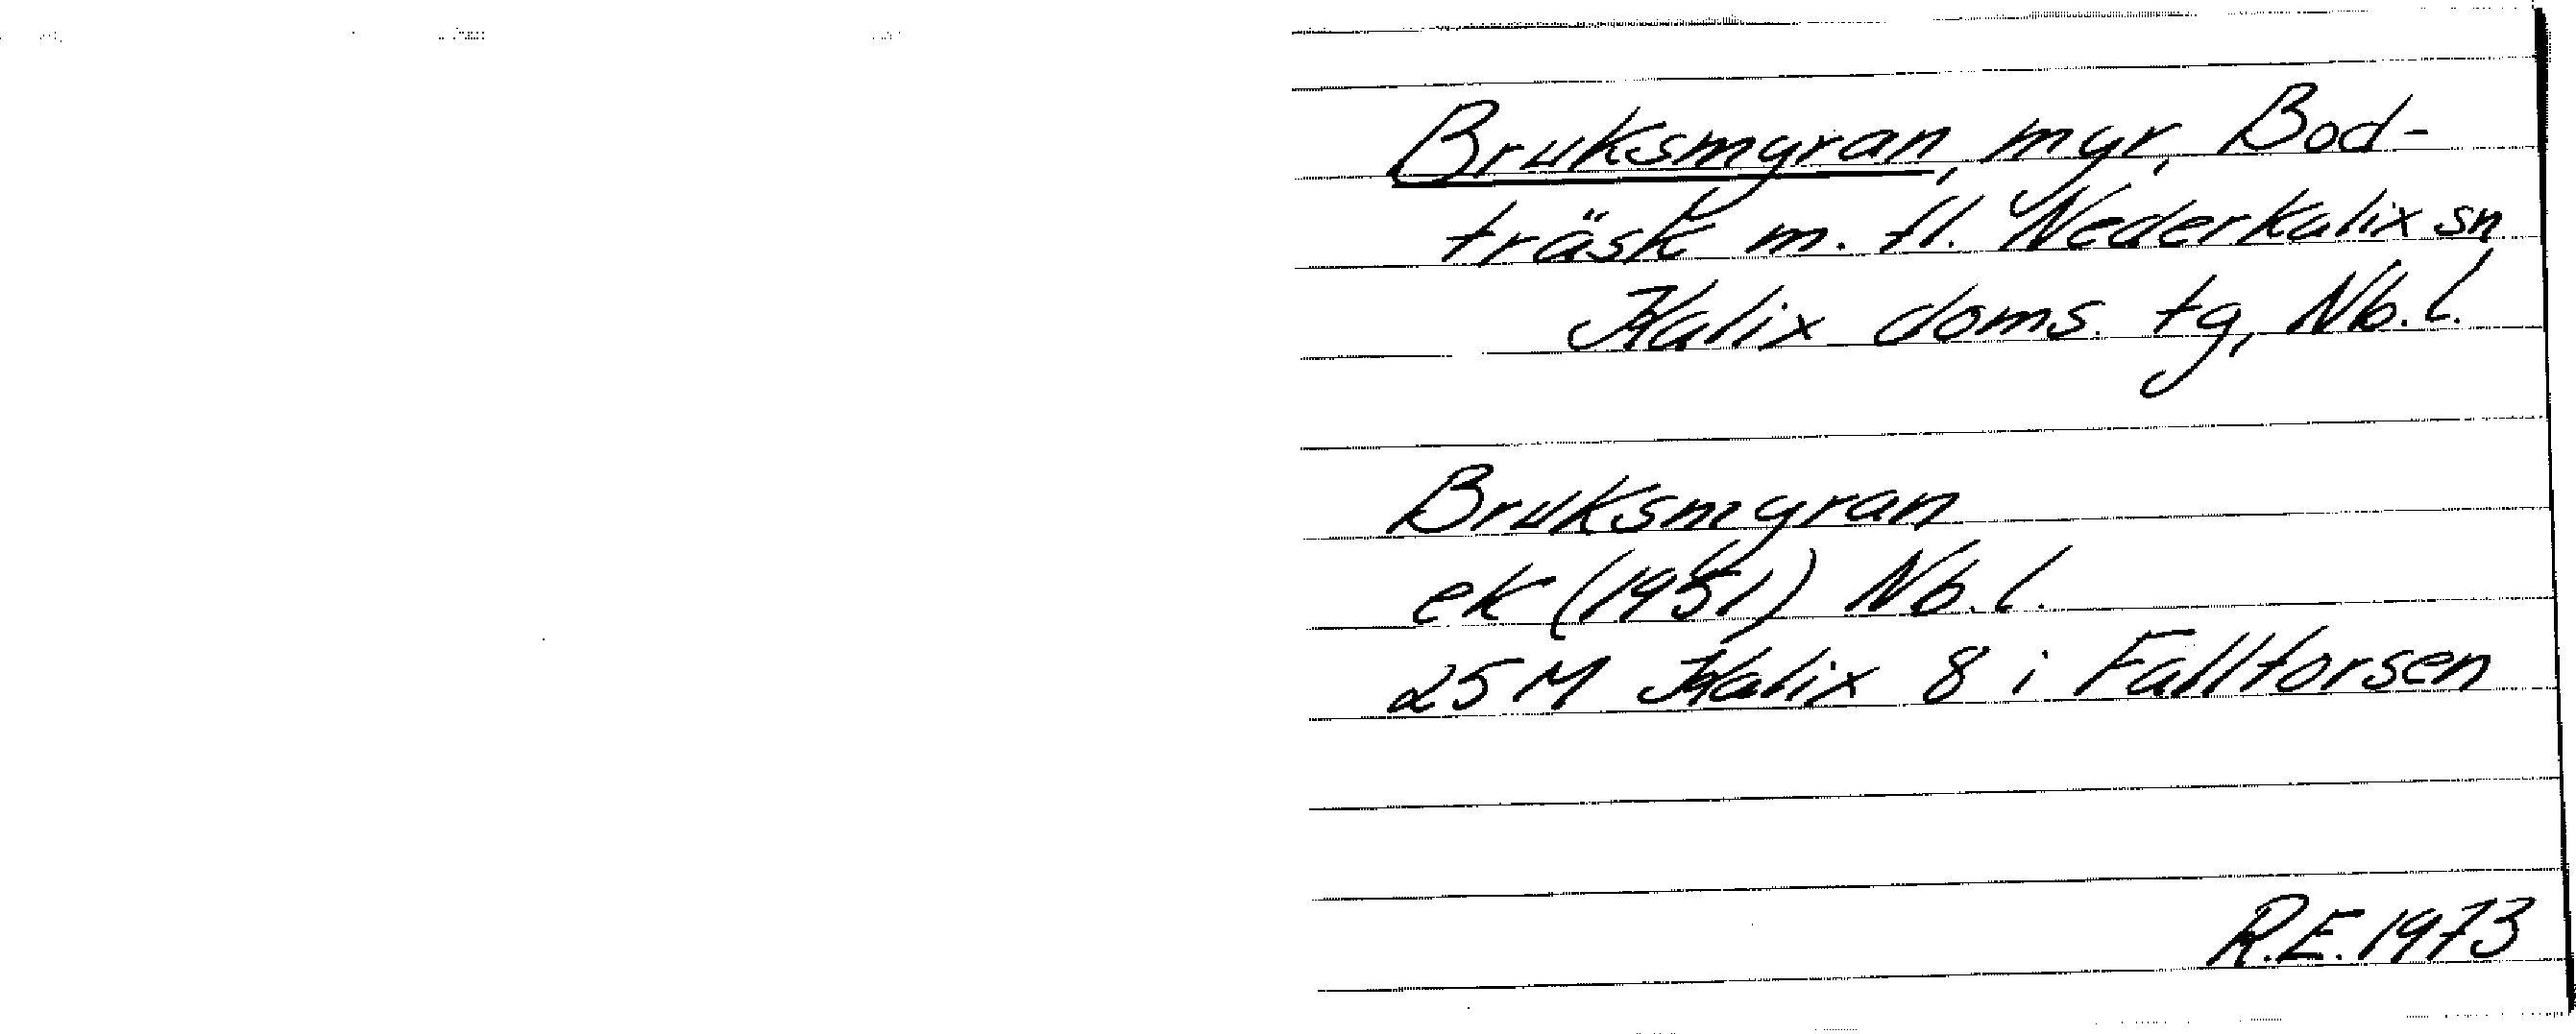 Bruksmyran, myr, Bod-
träsk m. fl. Nederkalix sn
Kalix doms. tg, Nb. l.
Bruksmyran
ek (1951) Nb. l.
25 M Kalix 8 i Fallforsen
R.E. 1973